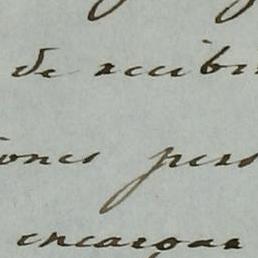 de recibir
iones pers
encargua